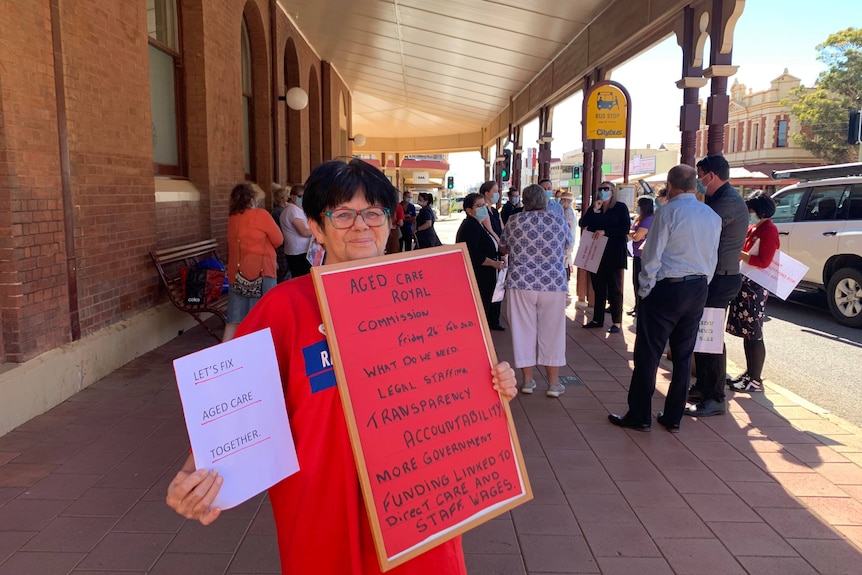 BUS STOP
Citybus
LET'S FIX
AGED CARE
TOGETHER.
AGED CARE
ROYAL
COMMISSION
Friday 26 Feb 2021.
WHAT DO WE NEED.
LEGAL STAFFING
TRANSPARENCY
ACCOUNTABILITY
MORE GOVERNMENT
FUNDING LINKED TO
Direct CARE AND
STAFF WAGES.